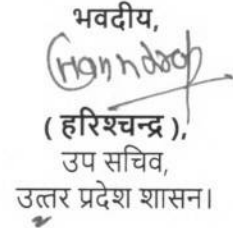 भवदीय,
( हरिश्चन्द्र ),
उप सचिव,
उत्तर प्रदेश शासन।